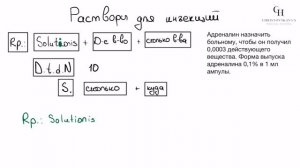 Растворы для инъекций
CH
Адреналин назначить
больному, чтобы он получил
0,0003 действующего
вещества. Форма выпуска
адреналина 0,1% в 1 мл
ампулы.
Rp.: Solutionis + D-е в-во + сколько в-ва
D.t.d N 10
S. сколько + куда
Rp.: Solutionis